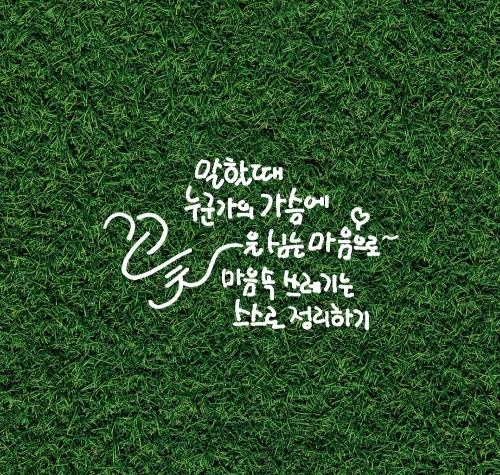 말할때
누군가의 가슴에
꽃을 심는 마음으로~
마음속 쓰레기는
스스로 정리하기